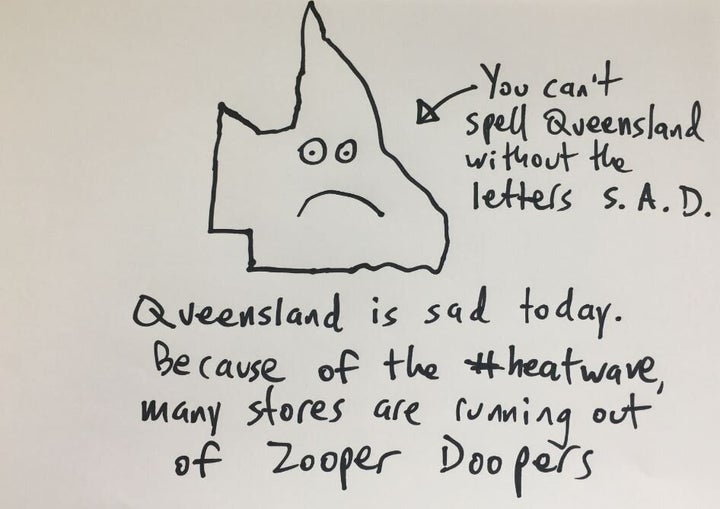 You can't
spell Queensland
without the
letters S.A.D.
Queensland is sad today.
Because of the #heatwave,
many stores are running out
of Zooper Doopers